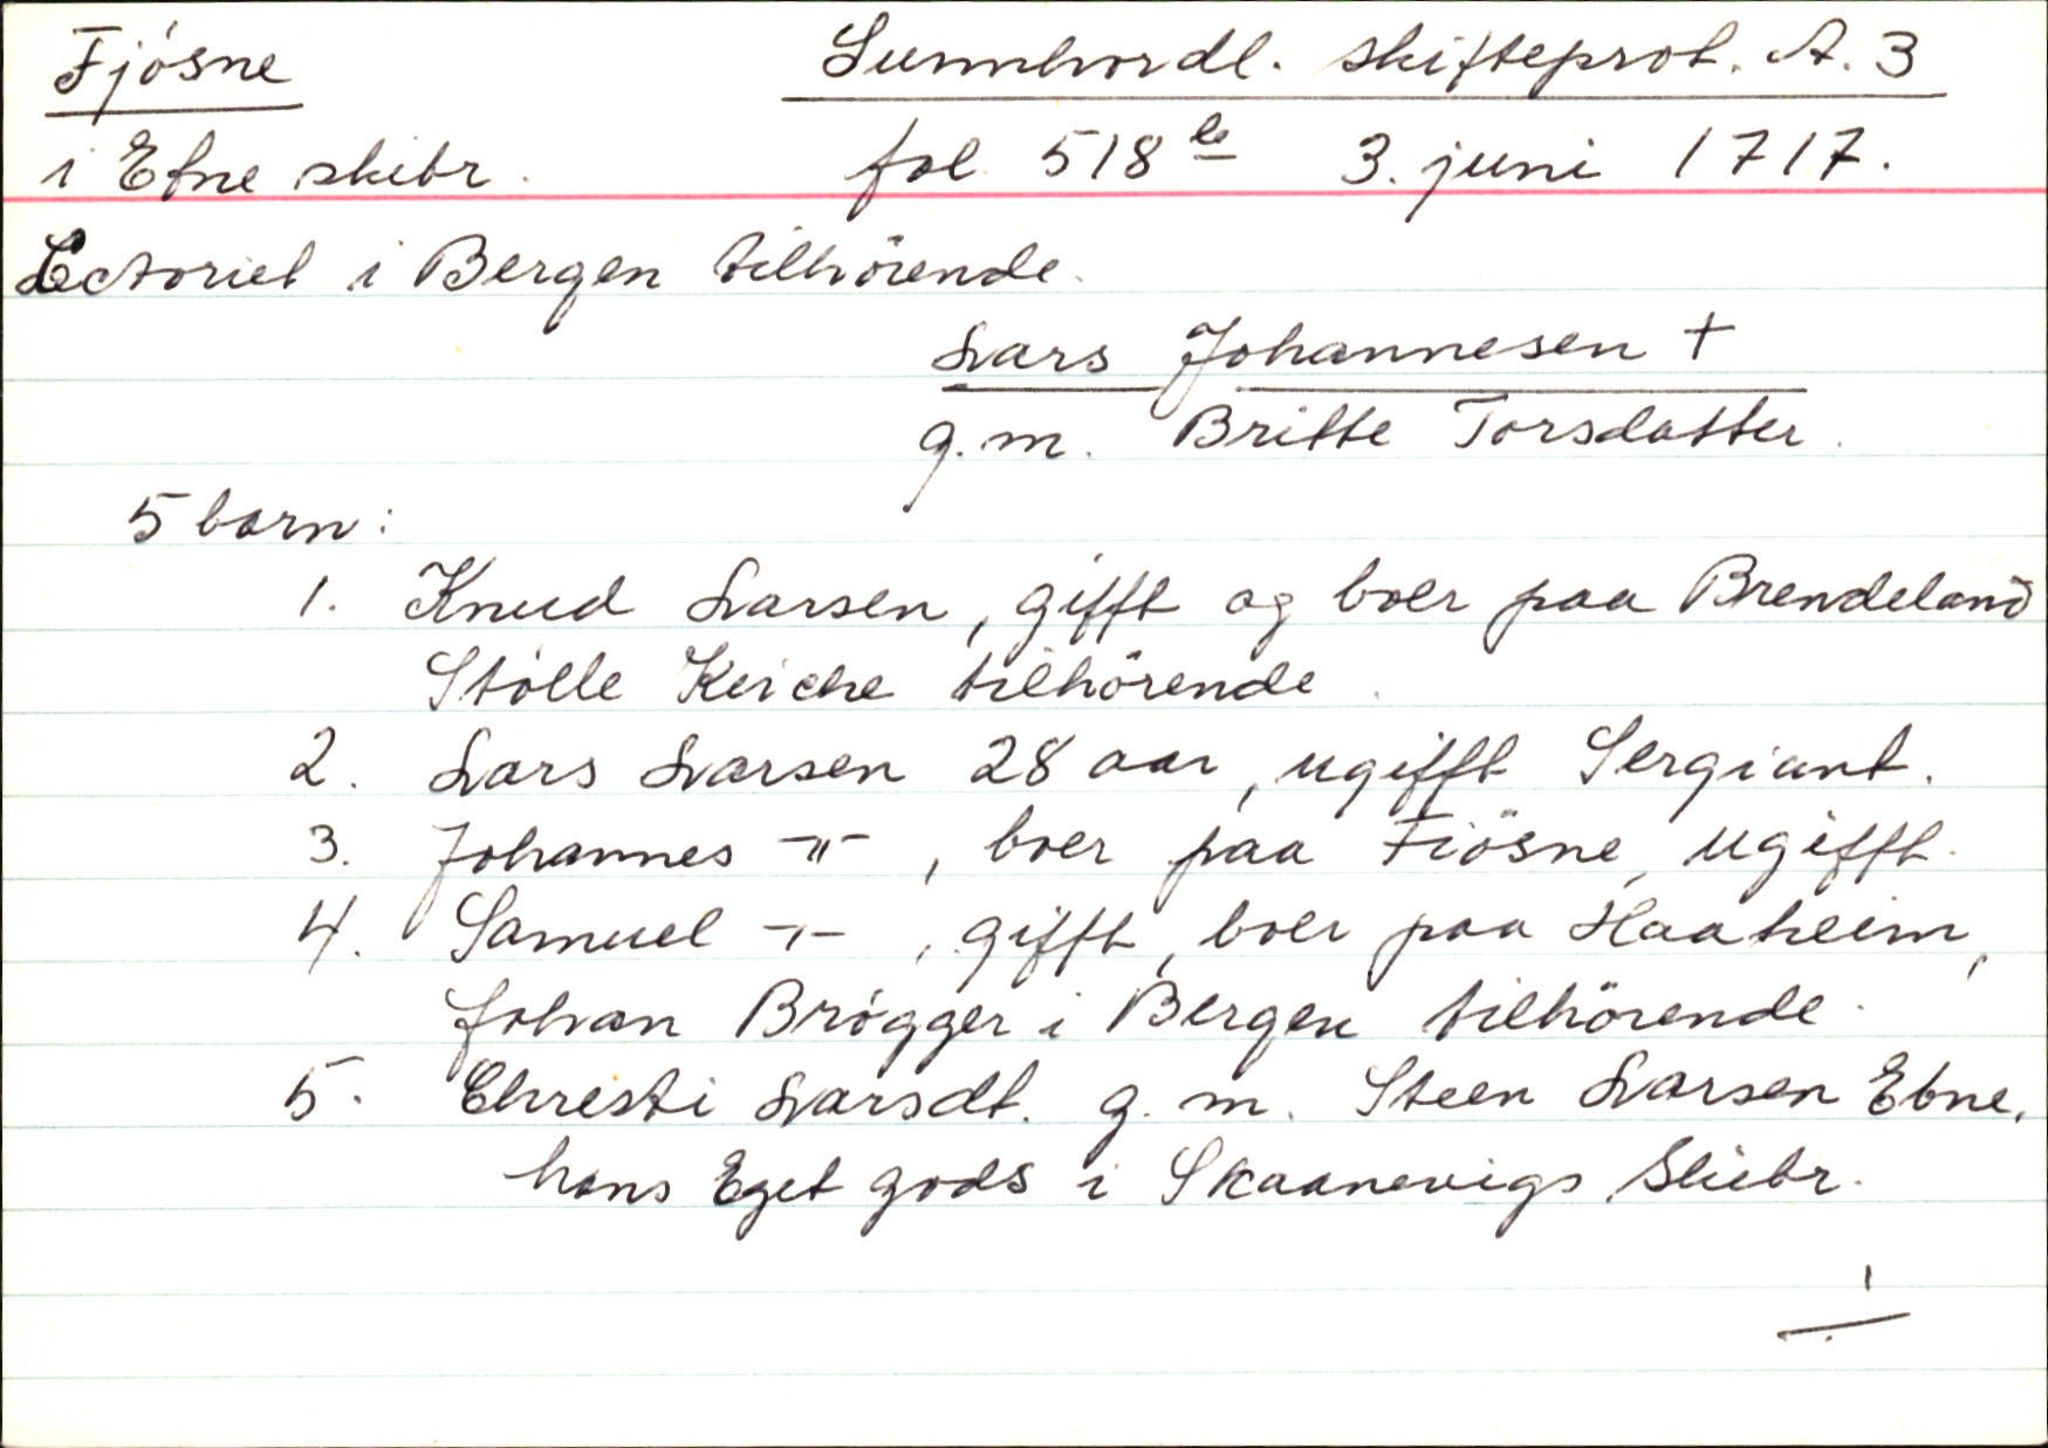 Fjösne Sunnhordl. skifteprot. A. 3
i Etne skibr. fol 518 b 3. juni 1717.
Lectoriet i Bergen tilhörende.
Lars Johannesen †
g. m. Britte Torsdatter.
5 born:
1. Knud Larsen, gifft og boer paa Brendeland
Stölle Kirche tilhörende.
2. Lars Larsen 28 aar, ugifft Sergiant.
3. Johannes -"-, boer paa Fiösne, ugifft.
4. Samuel -"-, gifft, boer paa Haaheim,
Johan Brögger i Bergen tilhörende.
5. Christi Larsdt. g. m. Steen Larsen Etne,
hans Eget gods i Skaanevigs Skibr.
1